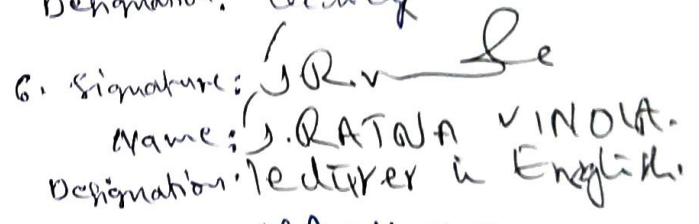 Designation:
6. Signature: J R.v
Name: J. RATNA VINOLA.
Designation: lecturer in English.